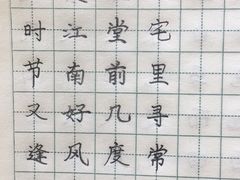 宅里寻常
堂前几度
江南好风
时节又逢